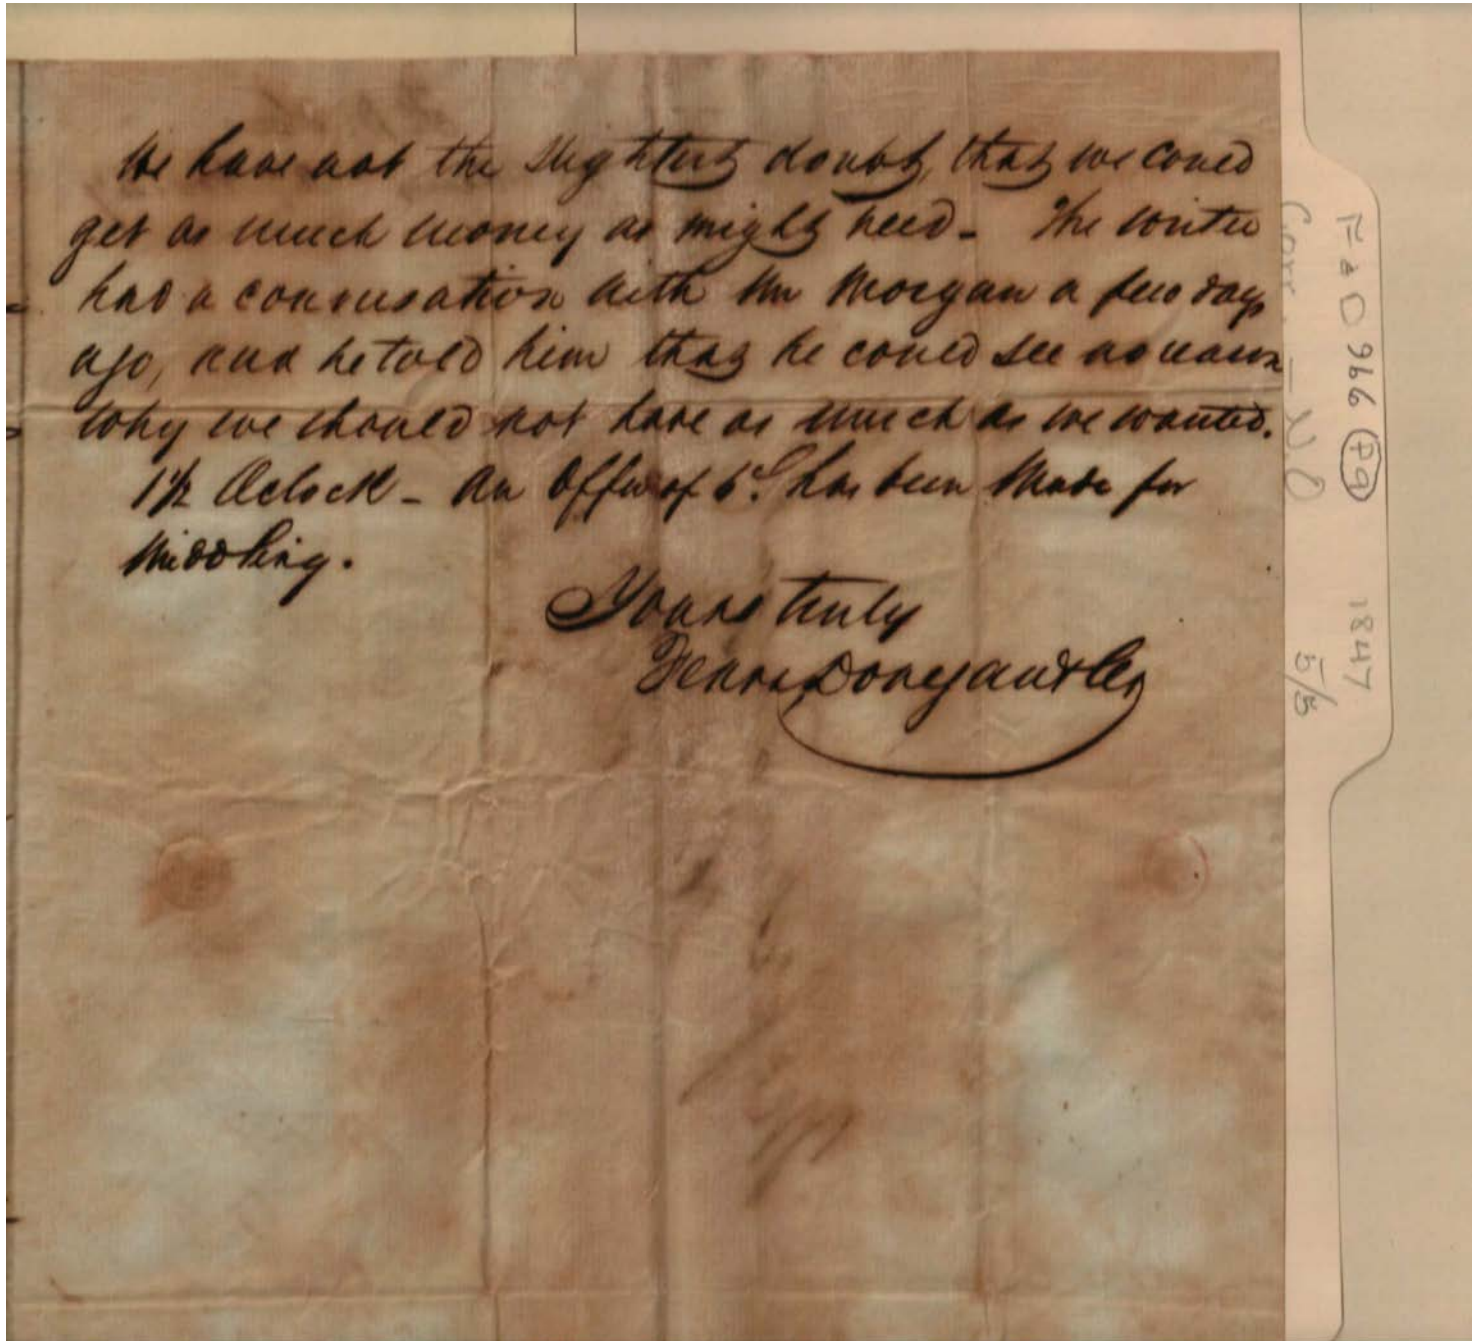 We have not the slightest doubt, that we could
get as much money as might need - The writer
had a conversation with Mr Morgan a few days
ago, and he told him that he could see no reason
why we should not have as much as we wanted.
1½ Oclock - An Offer of 6 has been made for
Middling.
Yours truly
Fearn Donegan & Co
F&D 966 (Pg) 1847
Corr - N.O 5/5